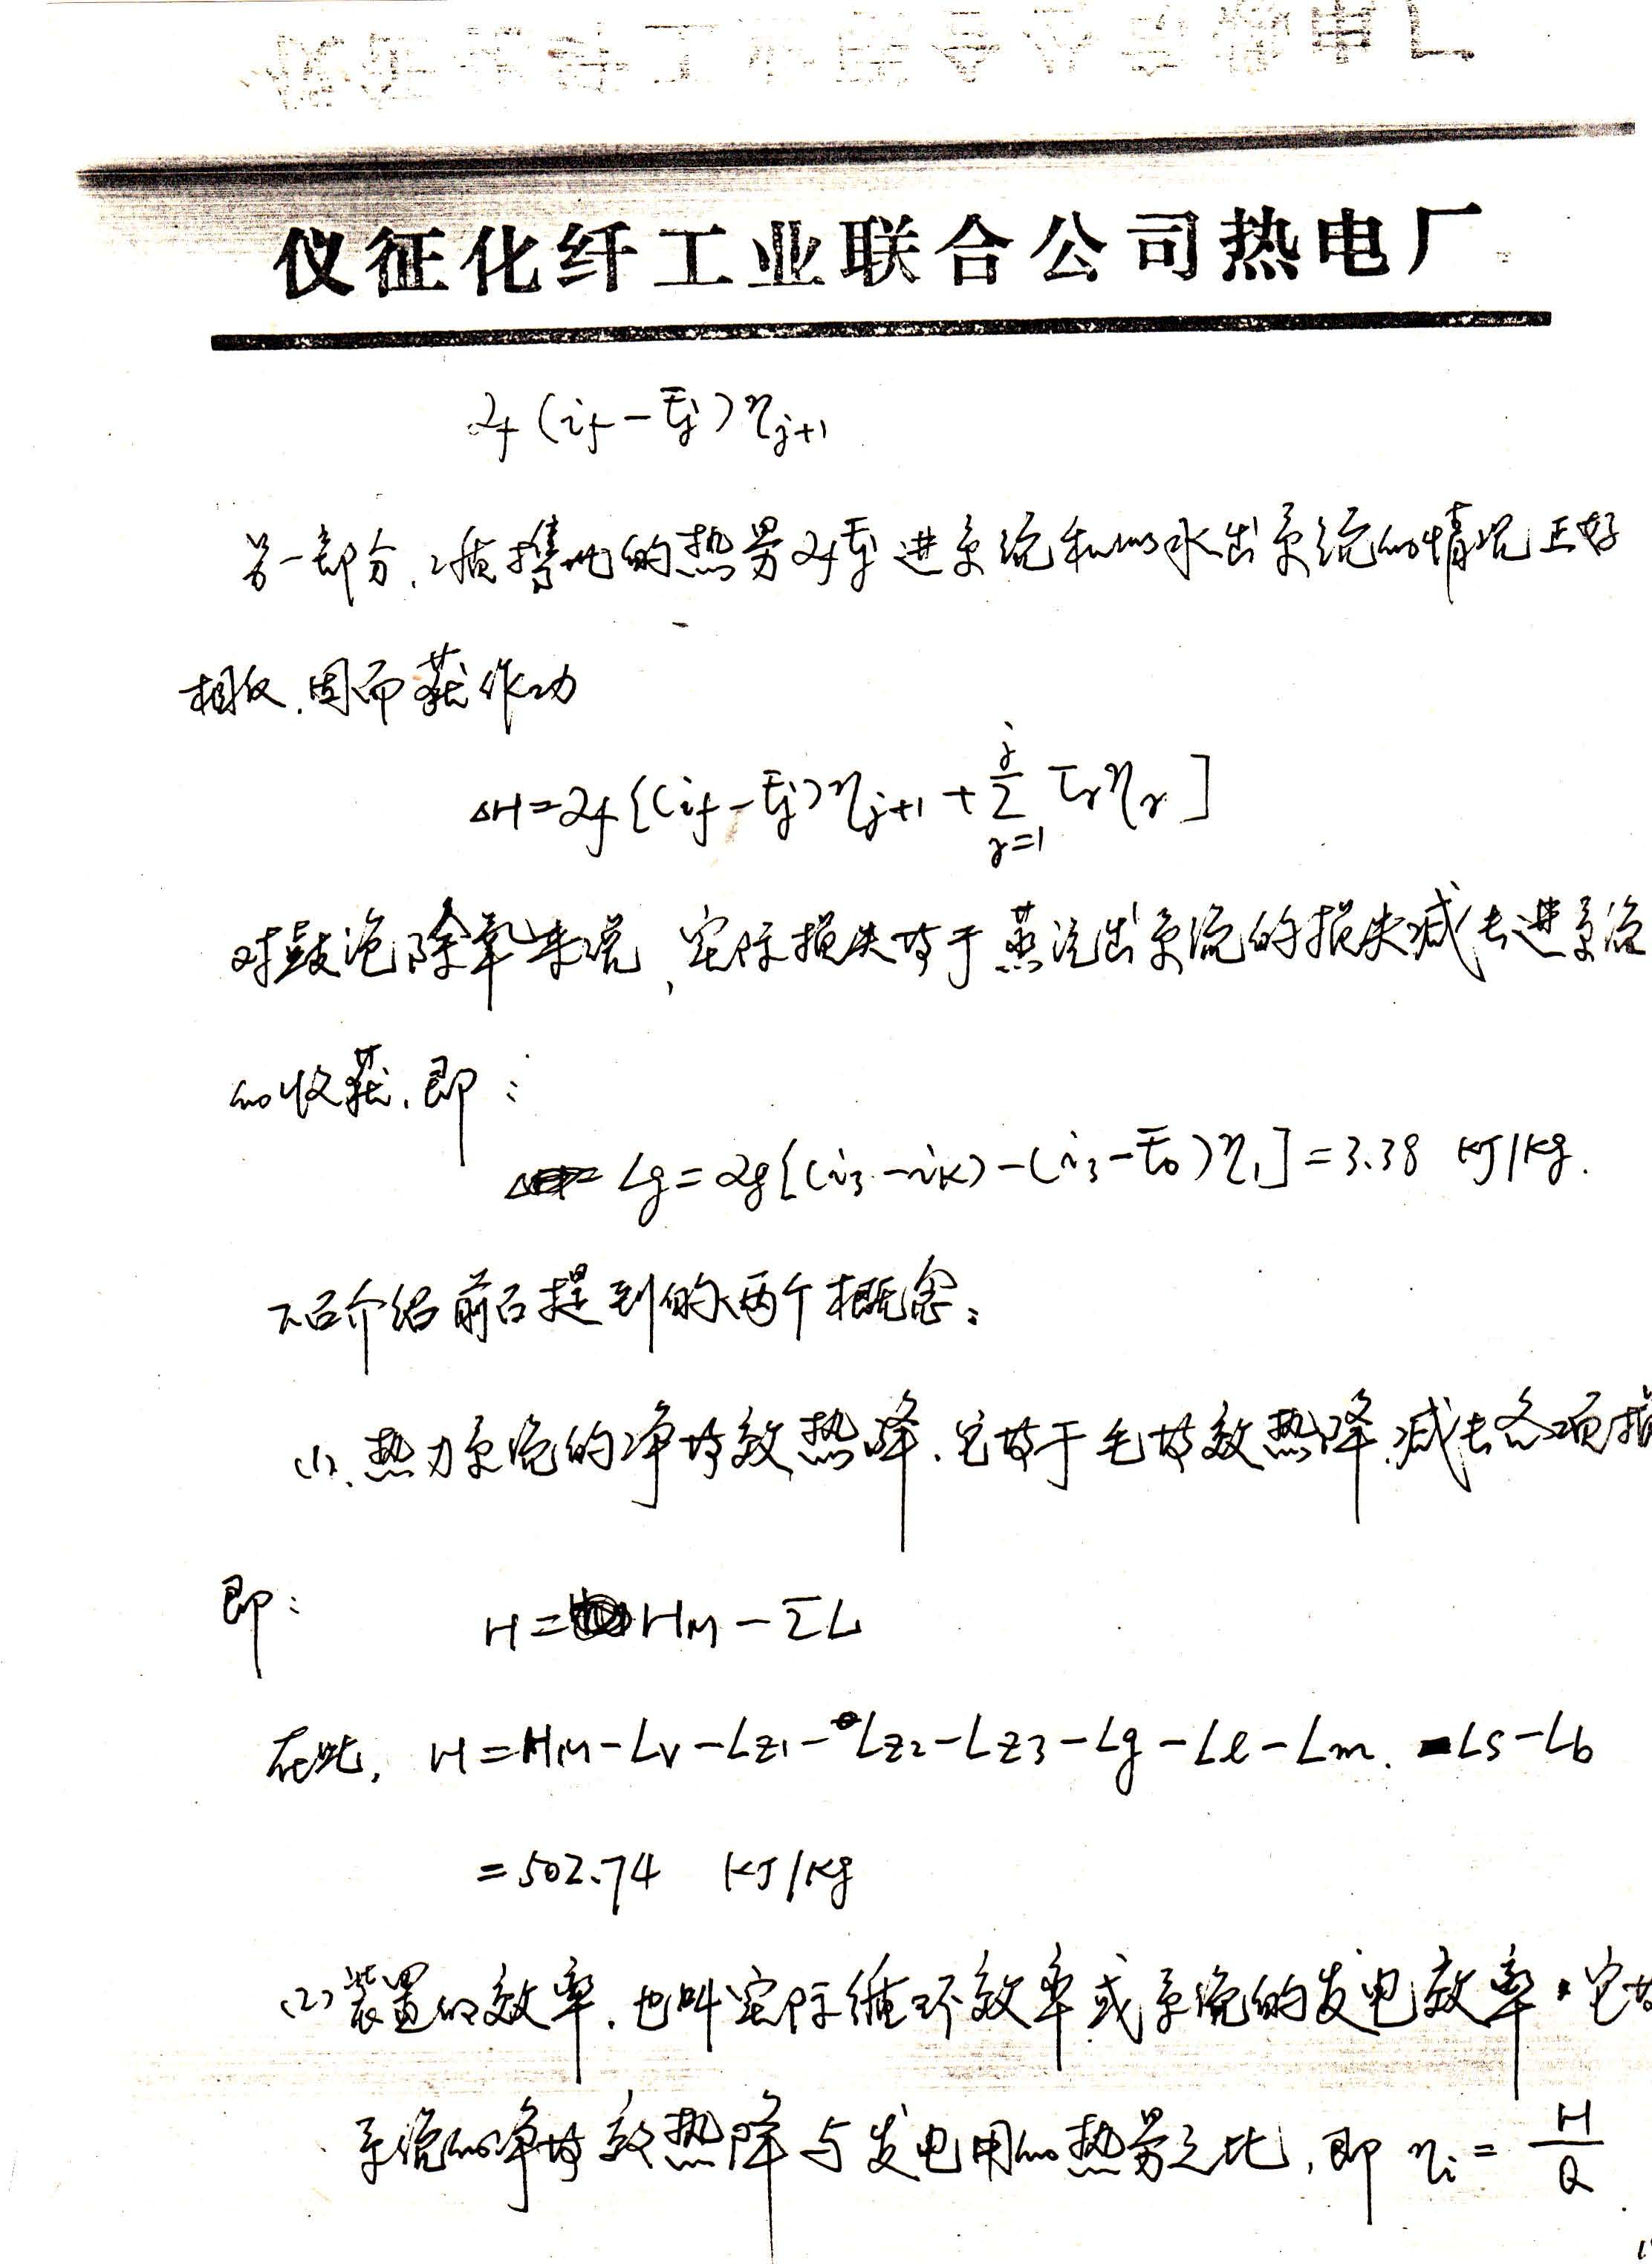 仪征化纤工业联合公司热电厂
αf(if-t̄j)ηj+1
另一部分,工质携带的热量αft̄j进系统和以水出系统的情况正好
相反.因而获作功
ΔH=αf[(if-t̄j)ηj+1+∑(r=1→j)τrηr]
对鼓泡除氧来说,实际损失等于蒸汽出系统的损失减去进系统
的收获.即:
Lg=αg[(i3-ik)-(i3-t̄0)η1]=3.38 KJ/Kg.
下面介绍前面提到的两个概念:
(1).热力系统的净等效热降.它等于毛等效热降.减去各项损
即: H=HM-ΣL
在此, H=HM-Lv-Lz1-Lz2-Lz3-Lg-Le-Lm.-Ls-Lb
=502.74 KJ/Kg
(2)装置的效率.也叫实际循环效率或系统的发电效率.它等
系统的净等效热降与发电用的热量之比,即 ηi=H/Q